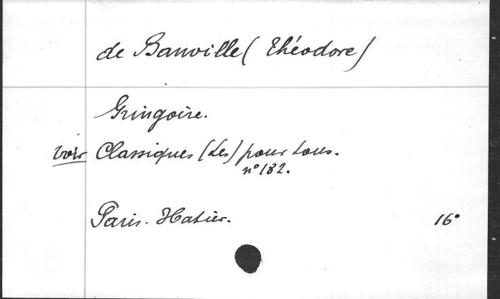 de Banville (Théodore)
Gringoire.
voir Classiques (Les) pour tous.
n° 182.
Paris. Hatier. 16°